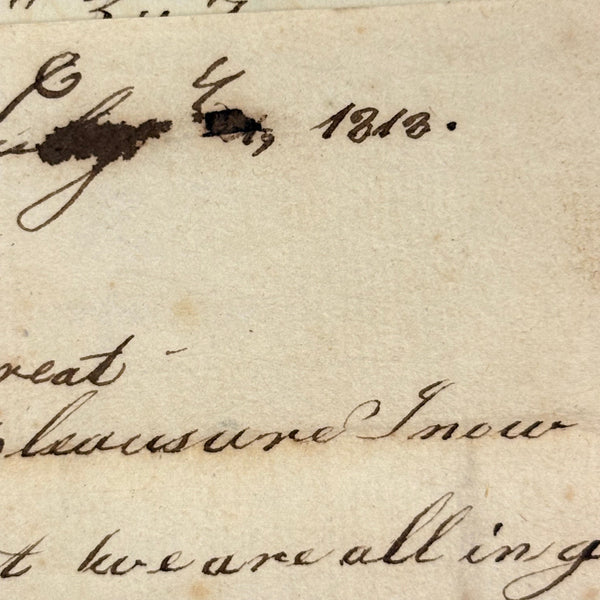 July 4, 1813.
reat
pleausure I now
t we are all in g